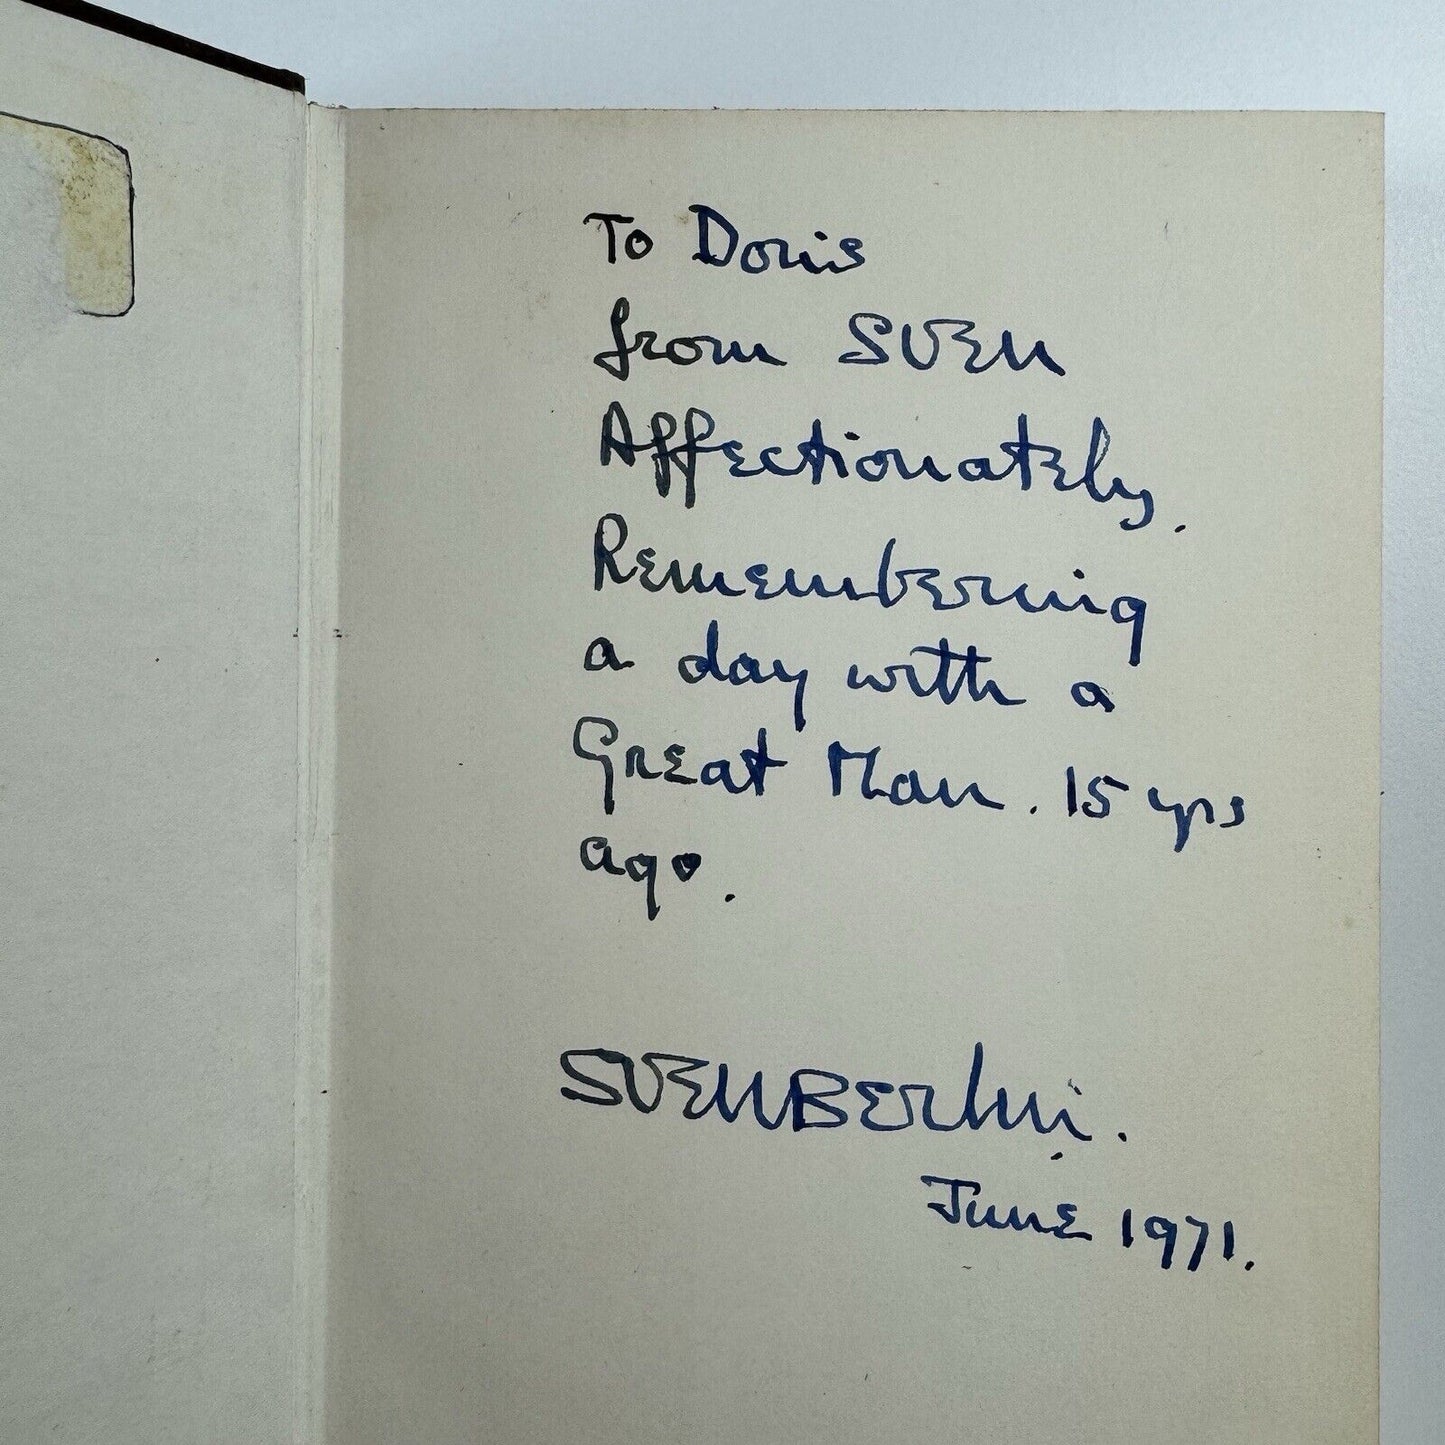 To Doris
from SVEN
Affectionately.
Remembering
a day with a
Great Man. 15 yrs
ago.
SVENBERlin.
June 1971.